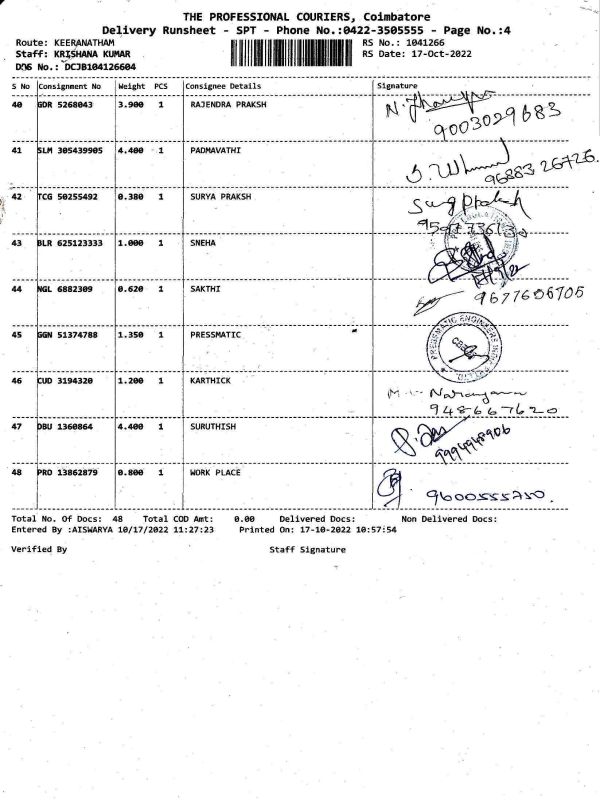 THE PROFESSIONAL COURIERS, Coimbatore
Delivery Runsheet - SPT - Phone No.:0422-3505555 - Page No.:4
Route: KEERANATHAM RS No.: 1041266
Staff: KRISHANA KUMAR RS Date: 17-Oct-2022
DRS No.: DCJB104126604
S No Consignment No Weight PCS Consignee Details Signature
40 GDR 5268043 3.900 1 RAJENDRA PRAKSH
9003029683
41 SLM 305439905 4.400 1 PADMAVATHI
96883 26726.
42 TCG 50255492 0.380 1 SURYA PRAKSH
43 BLR 625123333 1.000 1 SNEHA
44 NGL 6882309 0.620 1 SAKTHI
9677606705
45 GGN 51374788 1.350 1 PRESSMATIC
46 CUD 3194320 1.200 1 KARTHICK
9486667620
47 DBU 1360864 4.400 1 SURUTHISH
9994948906
48 PRO 13862879 0.800 1 WORK PLACE
9600555750.
Total No. Of Docs: 48 Total COD Amt: 0.00 Delivered Docs: Non Delivered Docs:
Entered By :AISWARYA 10/17/2022 11:27:23 Printed On: 17-10-2022 10:57:54
Verified By Staff Signature